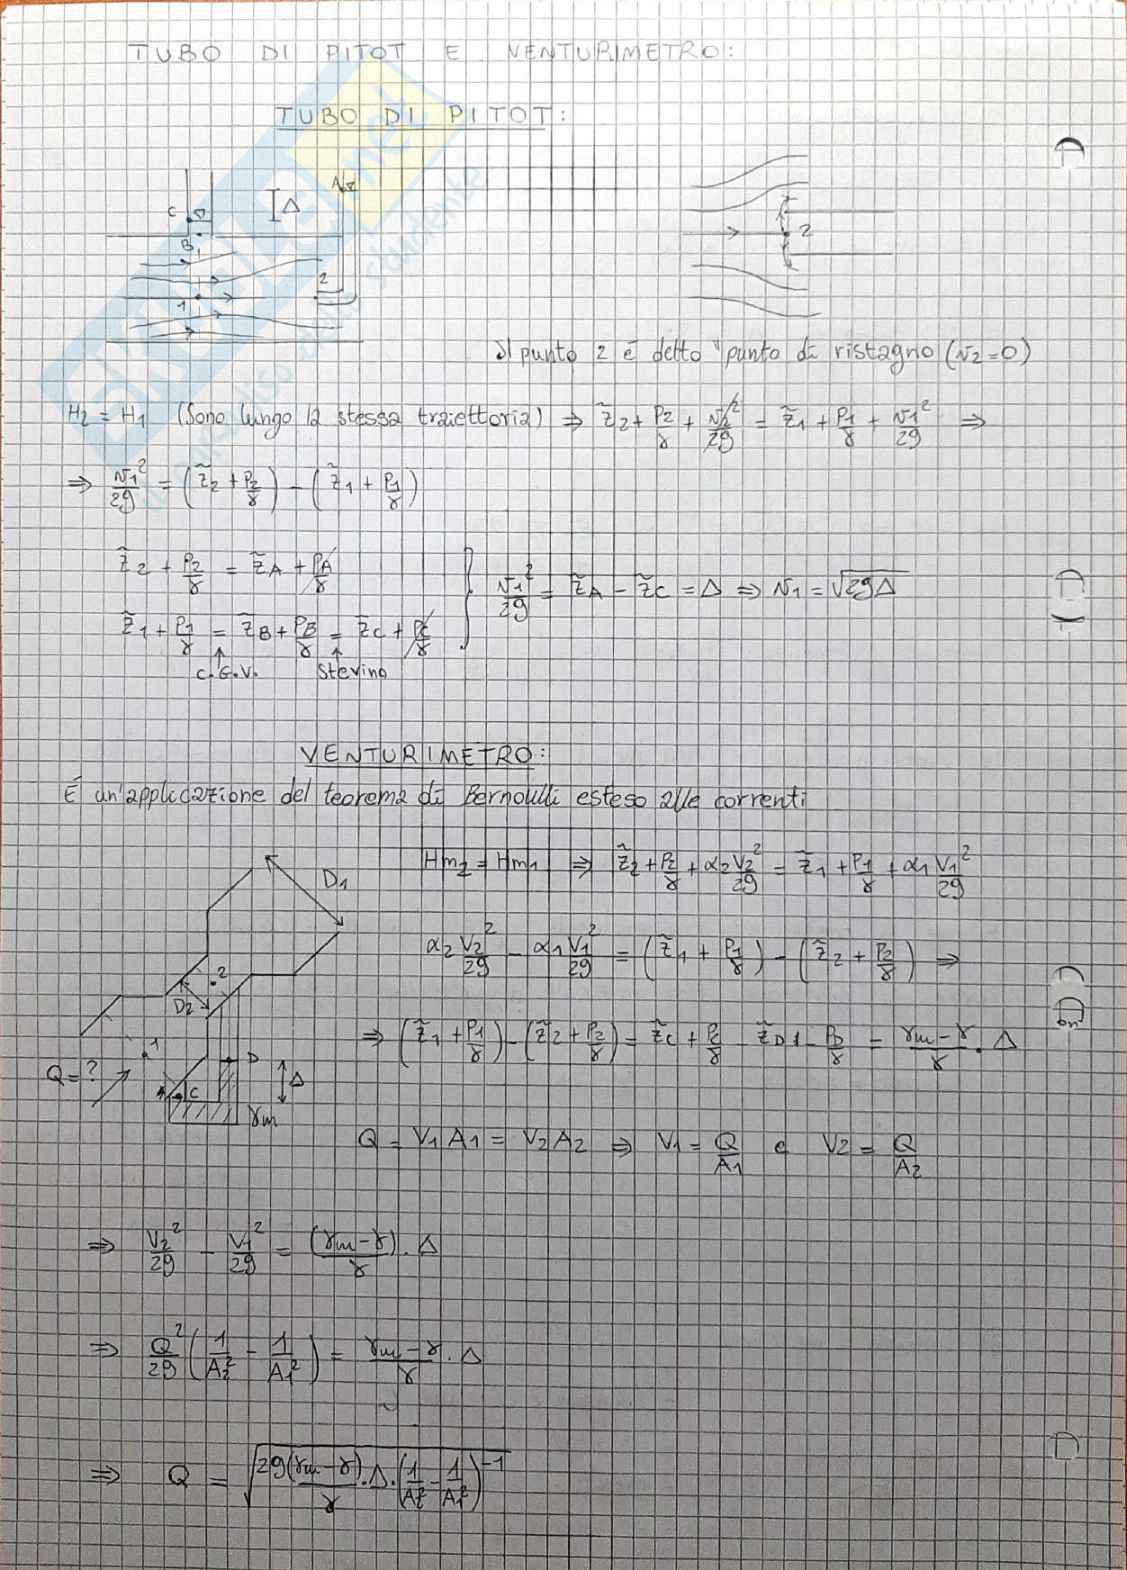 TUBO DI PITOT E VENTURIMETRO:
TUBO DI PITOT:
A
C
Δ
B
2
1
2
Il punto 2 è detto "punto di ristagno (v₂=0)
H₂ = H₁ (Sono lungo la stessa traiettoria) ⇒ z̃₂ + p₂/γ + v₂²/2g = z̃₁ + p₁/γ + v₁²/2g ⇒
⇒ v₁²/2g = (z̃₂ + p₂/γ) - (z̃₁ + p₁/γ)
z̃₂ + p₂/γ = z̃A + pA/γ
v₁²/2g = z̃A - z̃C = Δ ⇒ v₁ = √2gΔ
z̃₁ + p₁/γ = z̃B + pB/γ = z̃C + pC/γ
C.G.V. Stevino
VENTURIMETRO:
È un'applicazione del teorema di Bernoulli esteso alle correnti
Hm₂ = Hm₁ ⇒ z̃₂ + p₂/γ + α₂V₂²/2g = z̃₁ + p₁/γ + α₁V₁²/2g
D₁
α₂V₂²/2g - α₁V₁²/2g = (z̃₁ + p₁/γ) - (z̃₂ + p₂/γ) ⇒
2
D₂
⇒ (z̃₁ + p₁/γ) - (z̃₂ + p₂/γ) = z̃C + pC/γ - z̃D - pD/γ = γm-γ/γ · Δ
1
D
Q = ?
C
Δ
γm
Q = V₁A₁ = V₂A₂ ⇒ V₁ = Q/A₁ e V₂ = Q/A₂
⇒ V₂²/2g - V₁²/2g = (γm-γ)/γ · Δ
⇒ Q²/2g (1/A₂² - 1/A₁²) = γm-γ/γ · Δ
⇒ Q = √2g(γm-γ)/γ · Δ · (1/A₂² - 1/A₁²)⁻¹